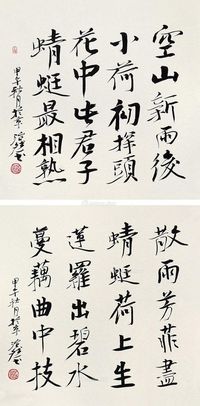 空山新雨後
小荷初探頭
花中此君子
蜻蜓最相熟
甲午秋月於京
散雨芳菲盡
蜻蜓荷上生
蓮羅出碧水
蔓藕曲中技
甲午秋月於京